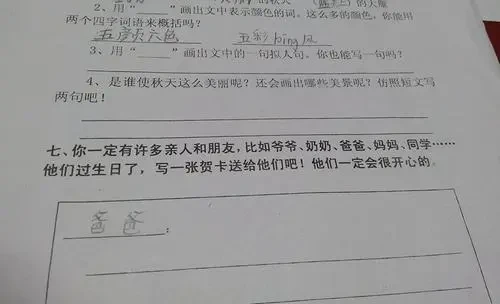 2、用“______”画出文中表示颜色的词。这么多的颜色，你能用
两个四字词语来概括吗？
五颜六色 五彩bīng风
3、用“______”画出文中的一句拟人句。你也能写一句吗？
4、是谁使秋天这么美丽呢？还会画出哪些美景呢？仿照短文写
两句吧！
七、你一定有许多亲人和朋友，比如爷爷、奶奶、爸爸、妈妈、同学……
他们过生日了，写一张贺卡送给他们吧！他们一定会很开心的。
爸爸：